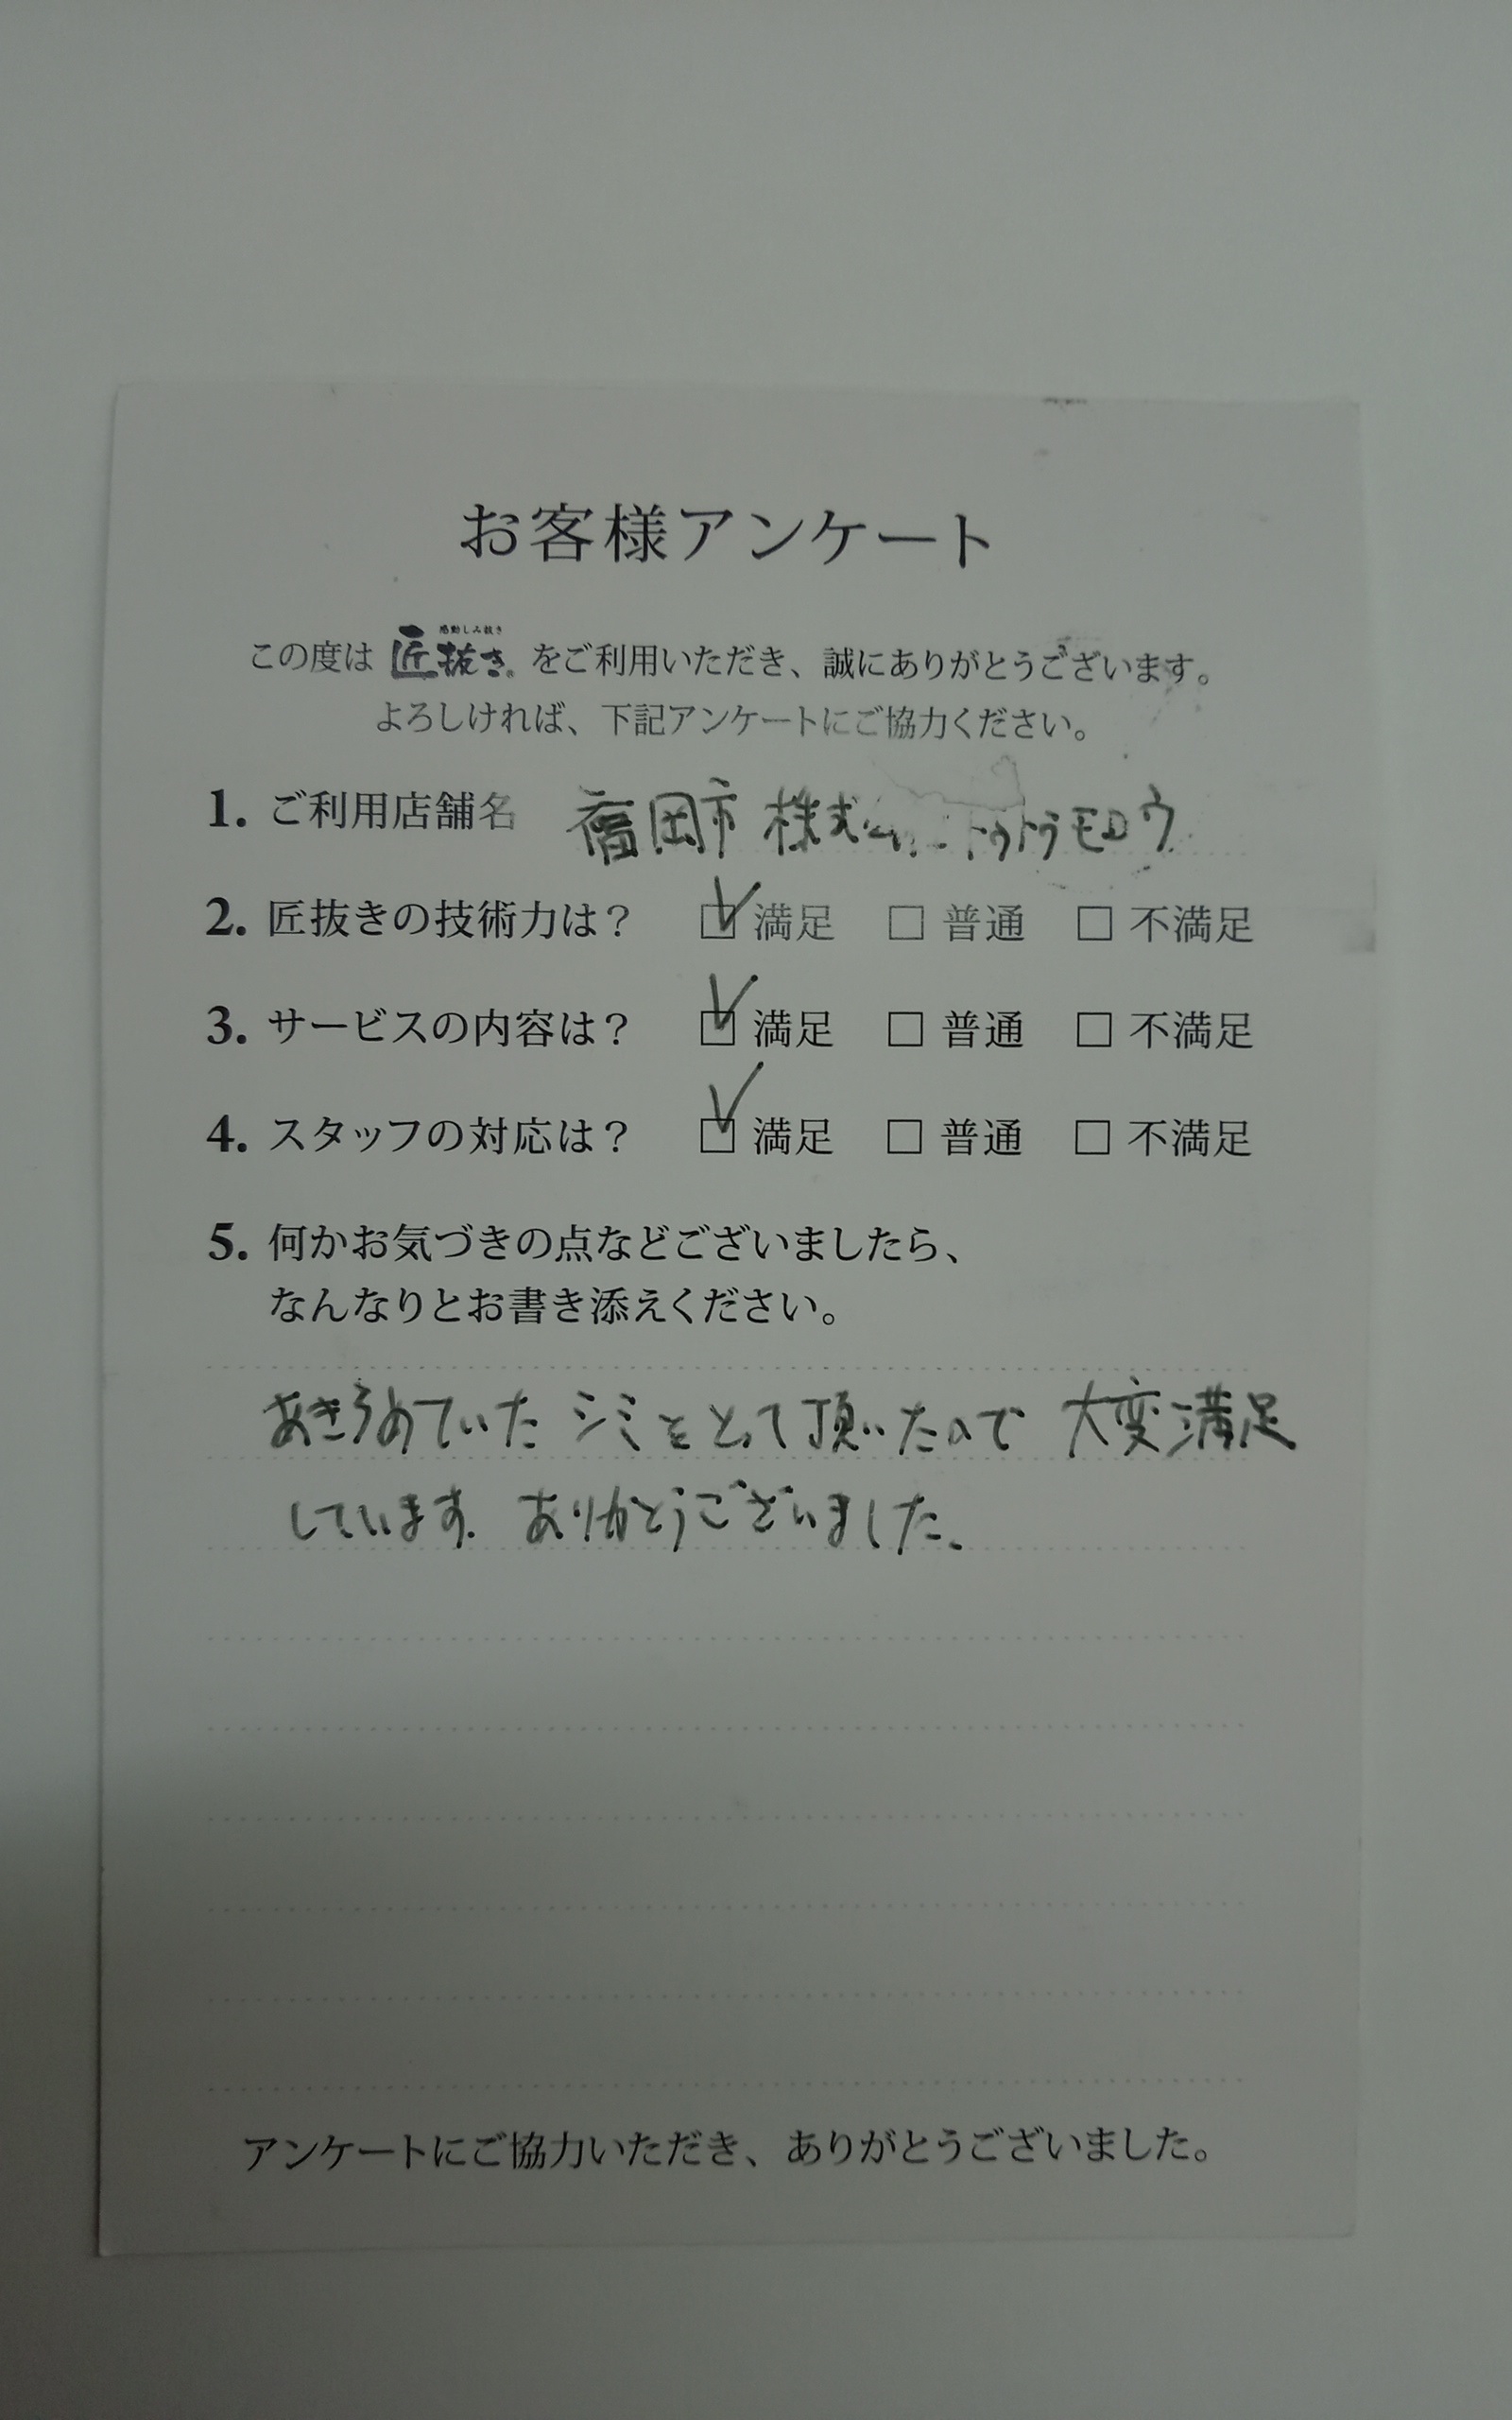 お客様アンケート
感動しみ抜き
この度は 匠抜き をご利用いただき、誠にありがとうございます。
よろしければ、下記アンケートにご協力ください。
1. ご利用店舗名 福岡市 株式
2. 匠抜きの技術力は? ☑ 満足 □ 普通 □ 不満足
3. サービスの内容は? ☑ 満足 □ 普通 □ 不満足
4. スタッフの対応は? ☑ 満足 □ 普通 □ 不満足
5. 何かお気づきの点などございましたら、
なんなりとお書き添えください。
あきらめていた シミをとって頂いたので 大変満足
しています. ありがとうございました.
アンケートにご協力いただき、ありがとうございました。